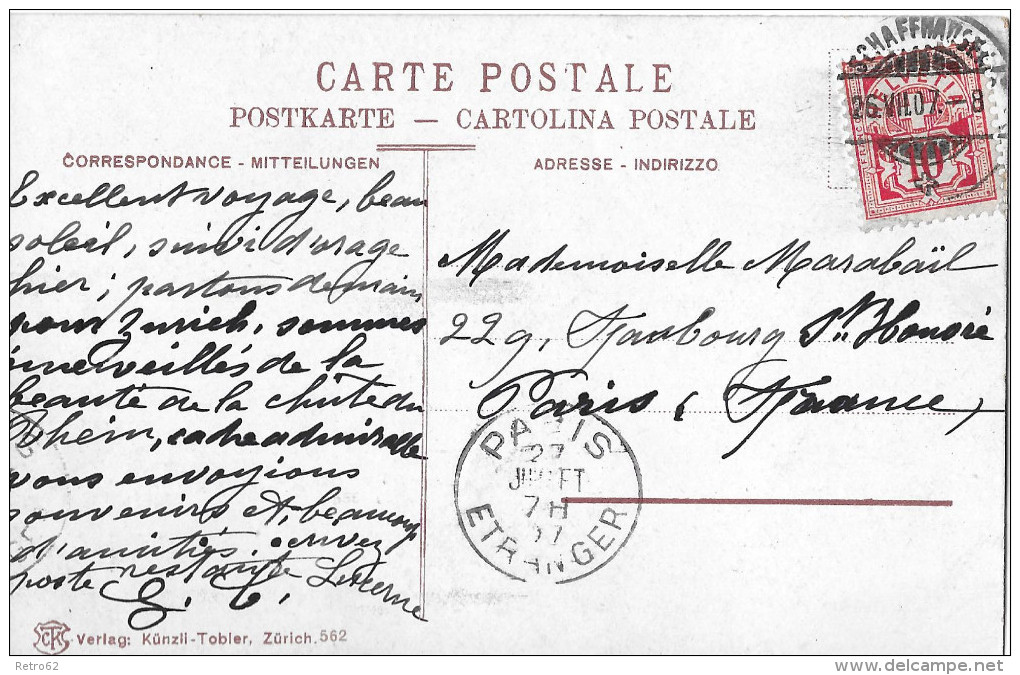 CARTE POSTALE
POSTKARTE — CARTOLINA POSTALE
CORRESPONDANCE - MITTEILUNGEN
ADRESSE - INDIRIZZO
SCHAFFHAUSEN
26.VII.07.-8
HELVETIA
10
Excellent voyage, beau
soleil, suivi d'orage
hier; partons demain
pour Zurich, sommes
émerveillés de la
beauté de la chûte du
Rhein, cadre admirable
vous envoyions
souvenirs et beaucoup
d'amitiés. ecrivez
poste restante Lucerne
Mademoiselle Marabail
229, Faubourg St. Honoré
Paris (France)
PARIS
27
JUILLET
7H
07
ETRANGER
Verlag: Künzli-Tobler, Zürich. 562
Retro62
www.delcampe.net